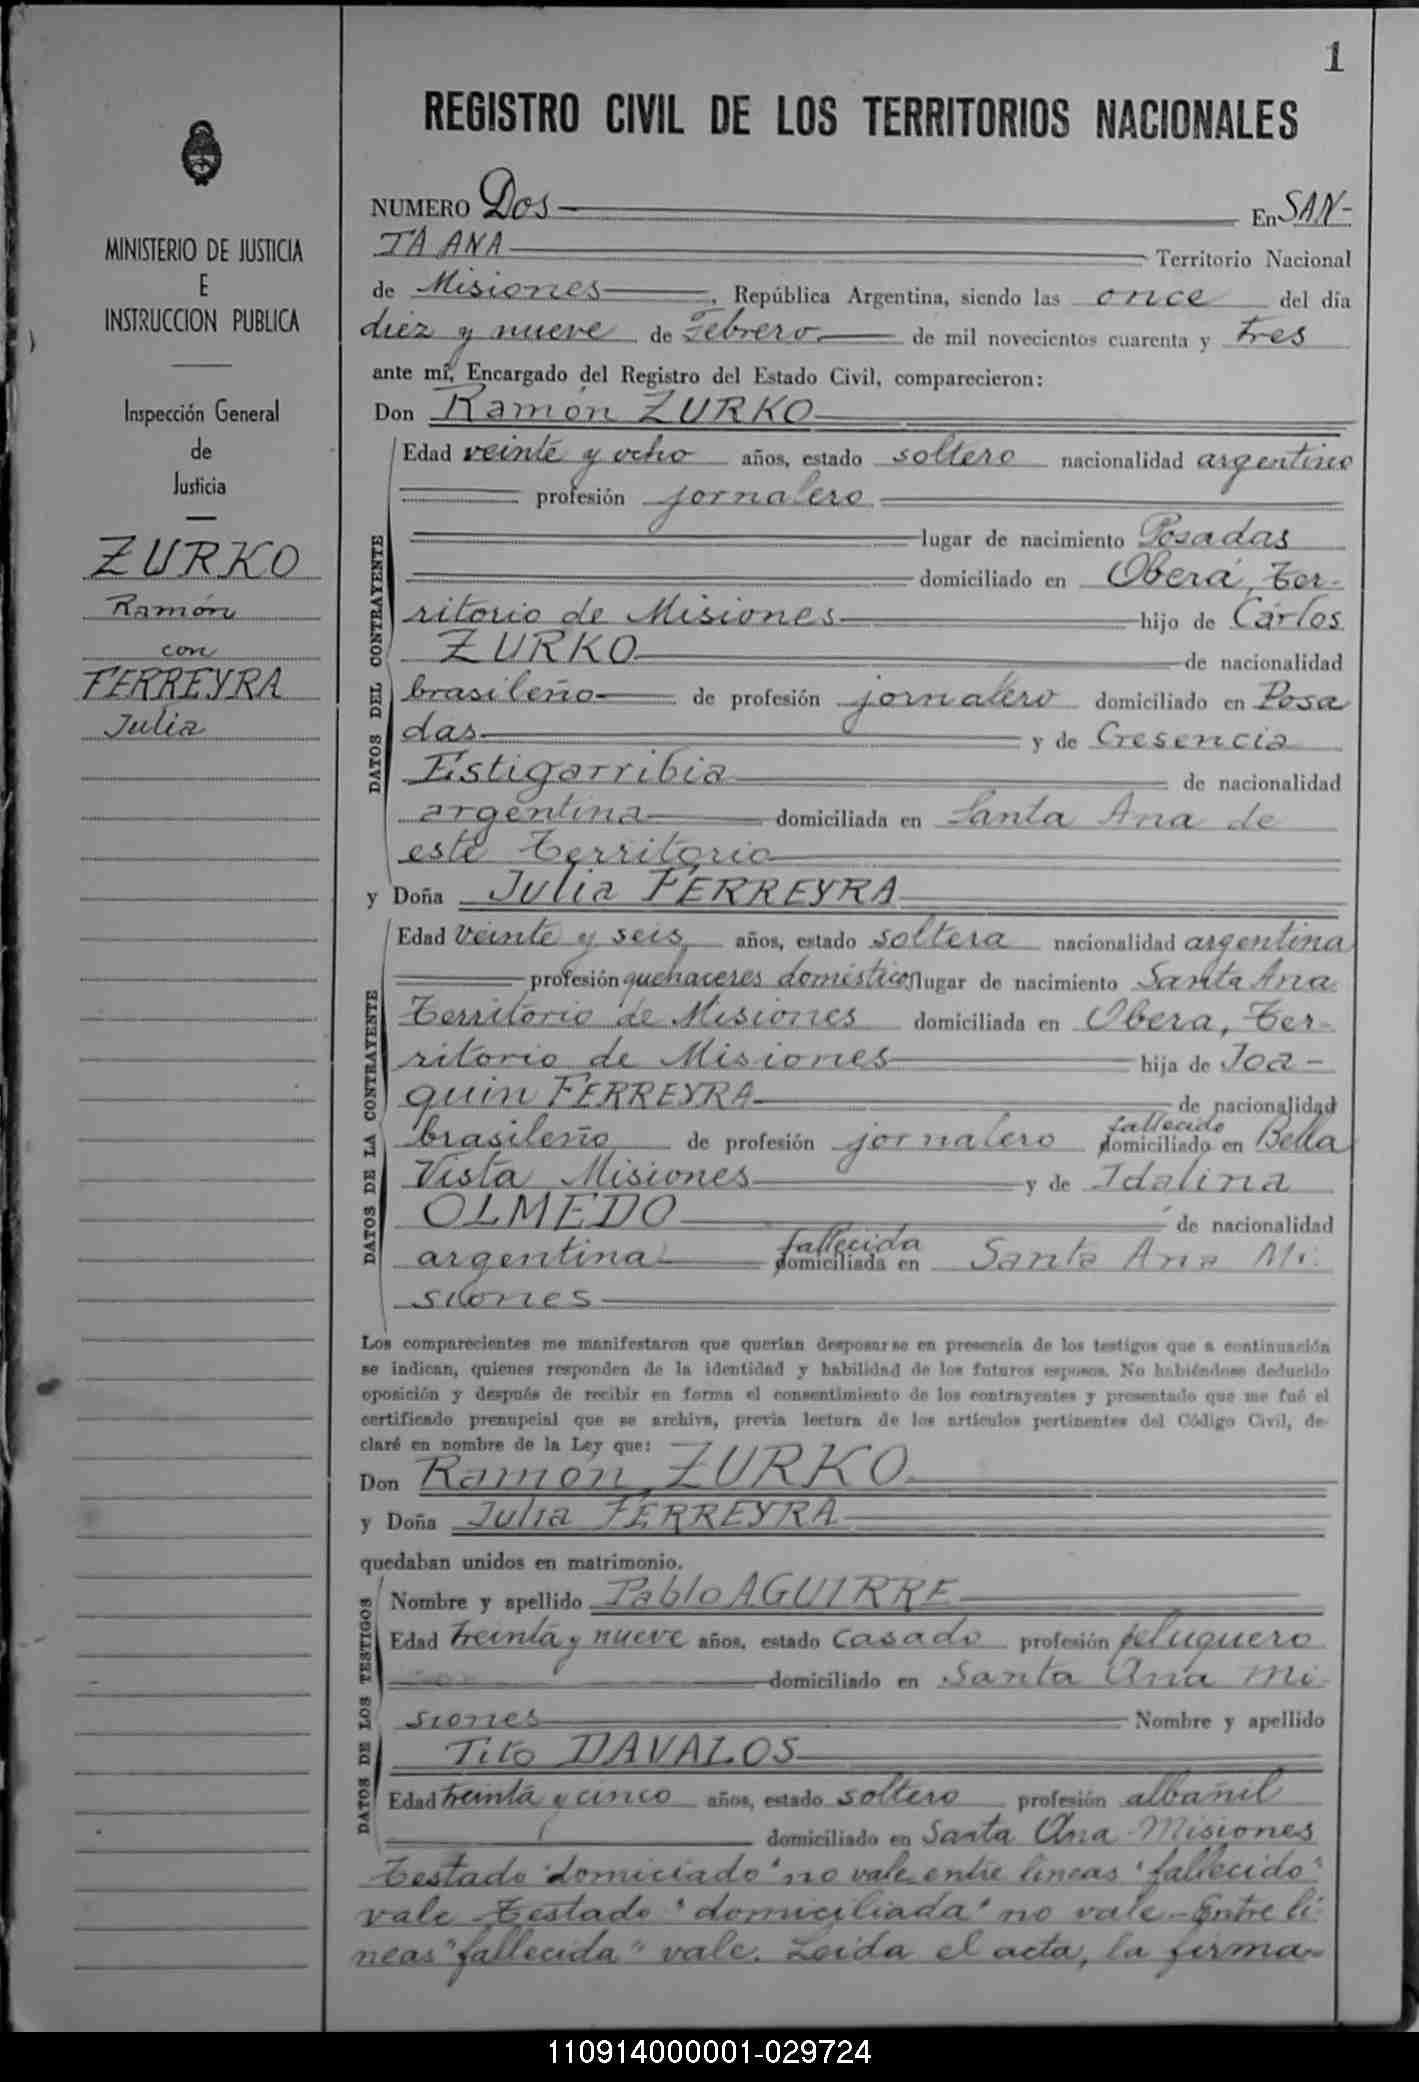 1
REGISTRO CIVIL DE LOS TERRITORIOS NACIONALES
MINISTERIO DE JUSTICIA
E
INSTRUCCION PUBLICA
Inspección General
de
Justicia
ZURKO
Ramón
con
FERREYRA
Julia
NUMERO Dos En SAN-
TA ANA Territorio Nacional
de Misiones, República Argentina, siendo las once del día
diez y nueve de Febrero de mil novecientos cuarenta y tres
ante mí, Encargado del Registro del Estado Civil, comparecieron:
Don Ramón ZURKO
DATOS DEL CONTRAYENTE
Edad veinte y ocho años, estado soltero nacionalidad argentino
profesión jornalero
lugar de nacimiento Posadas
domiciliado en Oberá, Ter-
ritorio de Misiones hijo de Cárlos
ZURKO de nacionalidad
brasileño de profesión jornalero domiciliado en Posa
das y de Cresencia
Estigarribia de nacionalidad
argentina domiciliada en Santa Ana de
este Territorio
y Doña Julia FERREYRA
DATOS DE LA CONTRAYENTE
Edad veinte y seis, años, estado soltera nacionalidad argentina
profesión quehaceres domésticos lugar de nacimiento Santa Ana
Territorio de Misiones domiciliada en Obera, Ter-
ritorio de Misiones hija de Joa-
quin FERREYRA de nacionalidad
fallecido
brasileño de profesión jornalero domiciliado en Bella
Vista Misiones y de Idalina
OLMEDO de nacionalidad
fallecida
argentina domiciliada en Santa Ana Mi-
siones
Los comparecientes me manifestaron que querían desposarse en presencia de los testigos que a continuación
se indican, quienes responden de la identidad y habilidad de los futuros esposos. No habiéndose deducido
oposición y después de recibir en forma el consentimiento de los contrayentes y presentado que me fué el
certificado prenupcial que se archiva, previa lectura de los artículos pertinentes del Código Civil, de-
claré en nombre de la Ley que:
Don Ramón ZURKO
y Doña Julia FERREYRA
quedaban unidos en matrimonio.
DATOS DE LOS TESTIGOS
Nombre y apellido Pablo AGUIRRE
Edad treinta y nueve años, estado casado profesión peluquero
domiciliado en Santa Ana Mi
siones Nombre y apellido
Tito DAVALOS
Edad treinta y cinco años, estado soltero profesión albañil
domiciliado en Santa Ana Misiones
Testado "domiciado" no vale entre líneas "fallecido"
vale Testado "domiciliada" no vale - Entre lí-
neas "fallecida" vale. Leida el acta, la firma-
110914000001-029724